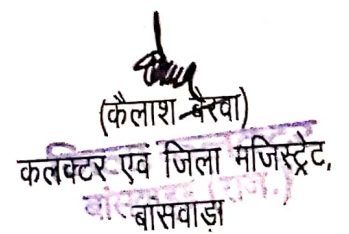 (कैलाश बैरवा)
कलक्टर एवं जिला मजिस्ट्रेट,
बांसवाड़ा